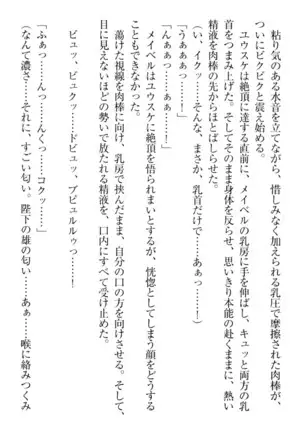 粘り気のある水音を立てながら、惜しみなく加えられる乳圧で摩擦された肉棒が、
ついにビクビクと震え始める。
ユウスケは絶頂に達する直前に、メイベルの乳房に手を伸ばし、キュッと両方の乳
首をつまみ上げた。そしてそのまま身体を反らせ、思いきり本能の赴くままに、熱い
精液を肉棒の先からほとばしらせた。
（い、イクッ……そんな、まさか、乳首だけで……）
「うぁぁぁっ……！」
「んぁっ……ぁぁっ……！」
メイベルはユウスケに絶頂を悟られまいとするが、恍惚としてしまう顔をどうする
こともできなかった。
蕩けた視線を肉棒に向け、乳房で挟んだまま、自分の口の方を向けさせる。そして
目に見えないほどの勢いで放たれる精液を、口内にすべて受け止めた。
ビュッ、ビュクッ……ドビュッ、ブビュルルゥっ……！
「ふぁっ……んっ……んくっ……コクッ……」
（なんて濃さ……それに、すごい匂い。陛下の雄の匂い……あぁ……喉に絡みつくみ